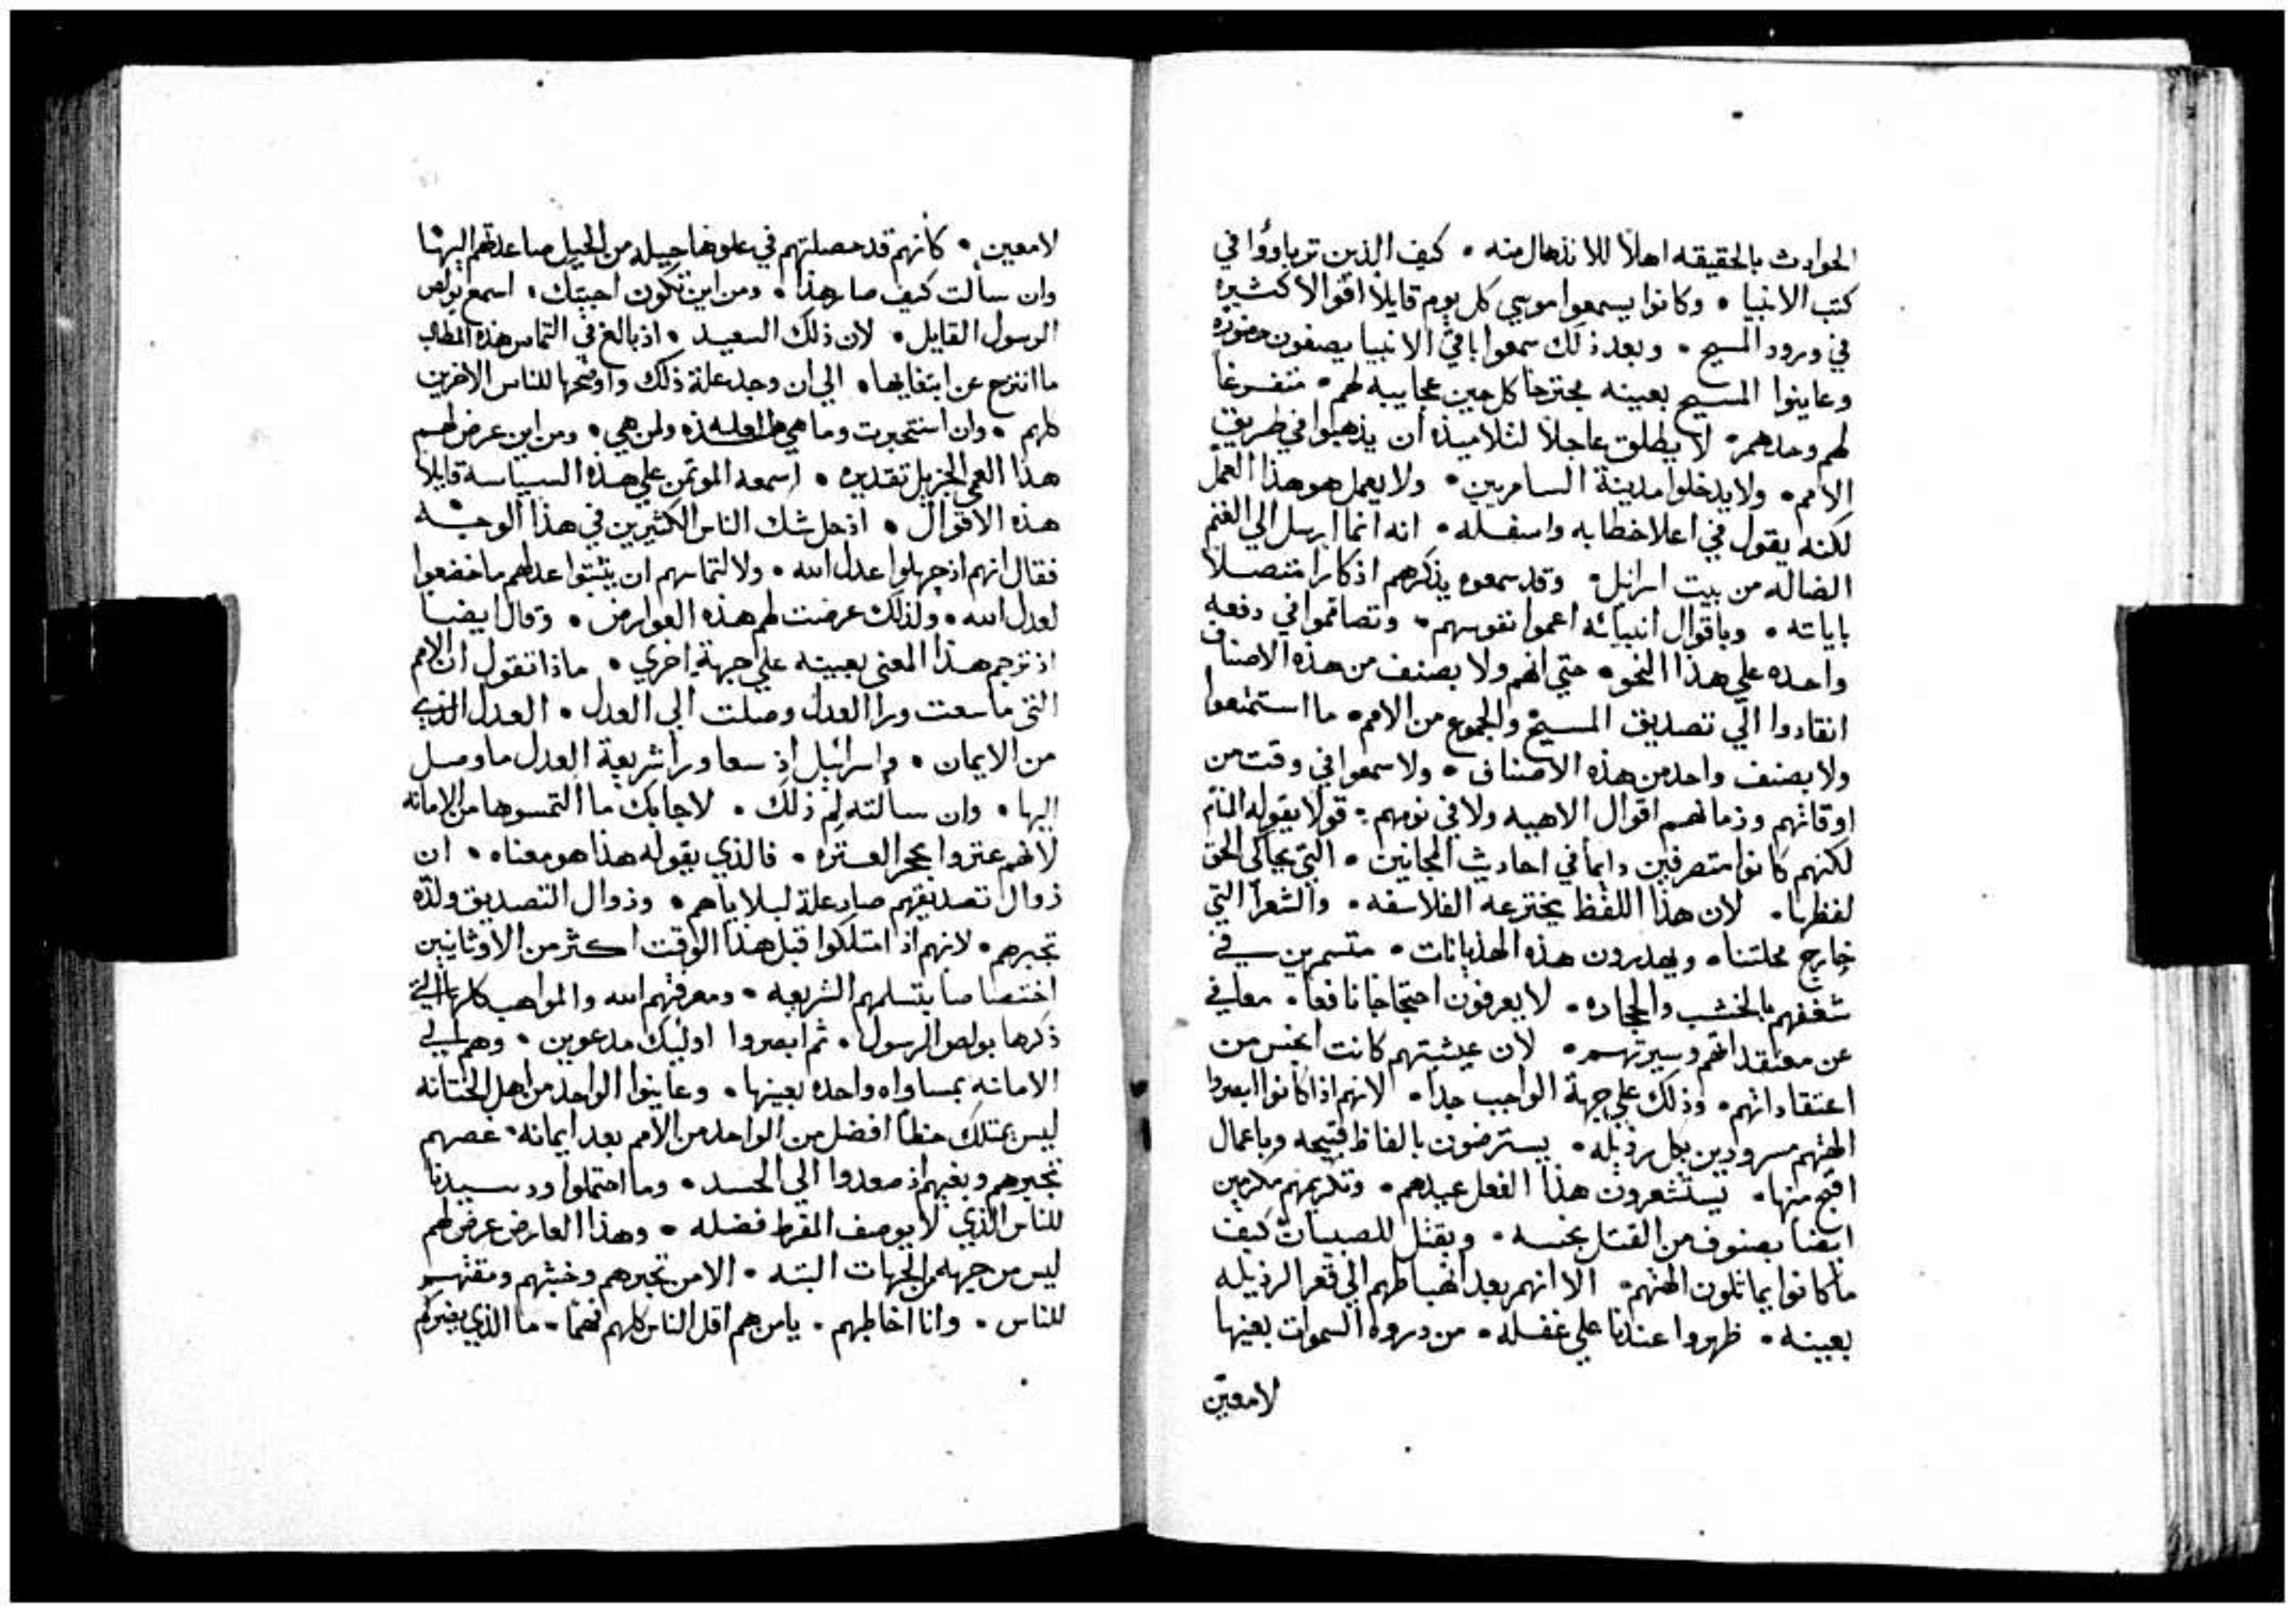 الحوادث بالحقيقه اهلاً للانذهال منه • كيف الذين تربا وؤا في
كتب الانبيا • وكانوا يسمعوا موسي كل يوم قايلاً اقوالا كثيره
في ورود المسيح • وبعد ذلك سمعوا باقي الانبيا يصفون حضوره
وعاينوا المسيح بعينه مجترحا كل حين عجاييبه لهم • متفرغاً
لهم وحدهم • لا يطلق عاجلاً لتلاميذه أن يذهبوا في طريق
الامم • ولا يدخلوا مدينة السامريين • ولا يعمل هو هذا العمل
لكنه يقول في اعلا خطابه واسفله • انه انما ارسل الي الغنم
الضاله من بيت اسرائيل • وقد سمعوه يذكرهم اذكارا متصلاً
باياته • وباقوال انبيائه اعموا نفوسهم • وتصامموا في دفعه
واحده علي هذا النحو • حتي انهم ولا بصنف من هذه الاصناف
انقادوا الي تصديق المسيح والجموع من الامم • ما استمتعوا
ولا بصنف واحد من هذه الاصناف • ولا سمعوا في وقت من
اوقاتهم وزمانهم اقوال الاهيه ولا في نومهم • قولا يقوله النائم
لكنهم كانوا متصرفين دايما في احاديث المجانين • التي يحاكي الحق
لفظها • لان هذا اللفظ يخترعه الفلاسفه • والشعرا التي
خارج محلتنا • ويهدرون هذه الهذيانات • متسمرين في
شغفهم بالخشب والحجاره • لا يعرفون احتجاجا نافعا • معافي
عن معتقداتهم وسيرتهم • لان عيشتهم كانت انجس من
اعتقاداتهم • وذلك علي جهة الواجب جدا • لانهم اذا كانوا ابصروا
الهتهم مسرودين بكل رذيله • يسترضون بالفاظ قبيحه وباعمال
اقبح منها • يستشعرون هذا الفعل عيدهم • وتكريمهم مكرمين
ايضا بصنوف من القتل نجسه • وبقتل للصبيان كيف
ما كانوا يماثلون الهتهم • الا انهم بعد انهباطهم الي قعر الرذيله
بعينه • ظهروا عندنا علي غفله • من ذروة السموات بعينها
لامعين
لامعين • كانهم قد حصلتهم في علوها حيله من الحيل صاعدتهم اليها
وان سالت كيف صار هذا • ومن اين تكون اجبتك • اسمع بولص
الرسول القايل • لان ذلك السعيد • اذ بالغ في التماس هذه المطالب
ما انتزح عن ابتغايها • الي ان وجد علة ذلك واوضحها للناس الاخرين
كلهم • وان استخبرت وما هي هذه ولمن هي • ومن اين عرض لهم
هذا العمي الجزيل تقديره • اسمعه الموتمن علي هذه السياسة قايلاً
هذه الاقوال • اذ حل شك الناس الكثيرين في هذا الوجه
فقال انهم اذ جهلوا عدل الله • ولالتماسهم ان يثبتوا عدلهم ما خضعوا
لعدل الله • ولذلك عرضت لهم هذه العوارض • وقال ايضا
اذ ترجم هذا المعني بعينه علي جهة اخري • ماذا نقول ان الامم
التي ما سعت ورا العدل وصلت الي العدل • العدل الذي
من الايمان • واسرائيل اذ سعا ورا شريعة العدل ما وصل
اليها • وان سالته لم ذلك • لاجابك ما التمسوها من الامانه
لانهم عتروا بحجر العتره • فالذي يقوله هذا هو معناه • ان
زوال تصديقهم صار علة لبلاياهم • وزوال التصديق ولده
تجبرهم • لانهم اذ امتلكوا قبل هذا الوقت اكثر من الاوثانيين
اختصاصا بتسلمهم الشريعه • ومعرفتهم الله والمواهب كلها التي
ذكرها بولص الرسول • ثم ابصروا اولئيك مدعوين • وهم الي
الامانه بمساواه واحده بعينها • وعاينوا الواحد من اهل الختانه
ليس يمتلك حظاً افضل من الواحد من الامم بعد ايمانه • غصهم
تجبرهم وبغيهم اذ صعدوا الي الحسد • وما احتملوا ود سيدنا
للناس الذي لا يوصف المفرط فضله • وهذا العارض عرض لهم
ليس من جهه من الجهات البته • الا من تجبرهم وخبثهم ومقتهم
للناس • وانا اخاطبهم • يا من هم اقل الناس كلهم فهما • ما الذي يضركم